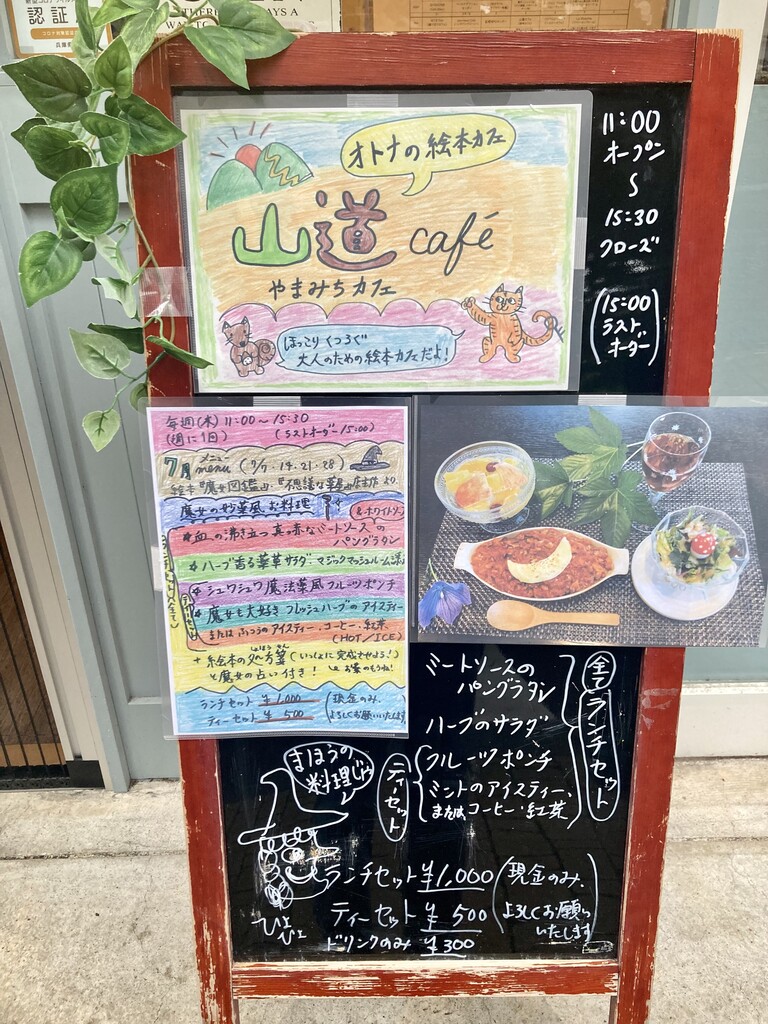 認証
THERE
AYS A
WAY TO
兵庫
オトナの絵本カフェ
山道 café
やまみちカフェ
ほっこり くつろぐ
大人のための絵本カフェだよ!
11:00
オープン
〜
15:30
クローズ
(15:00
ラスト
オーダー)
毎週(木) 11:00〜15:30
(週に1回) (ラストオーダー 15:00)
7月 メニュー menu (7/7.14.21.28)
絵本『魔女図鑑』『不思議な薬
魔女の妙薬風お料理
(&ホワイトソース
*血の沸き立つ真っ赤なミートソースの
パングラタン
*ハーブ香る薬草サラダ マジックマッシュルーム添え
*シュワシュワ魔法薬風フルーツポンチ
*魔女も大好き フレッシュハーブのアイスティー
または ふつうのアイスティー・コーヒー・紅茶
(HOT/ICE)
ティーセット
+絵本の処方箋(いっしょに完成させよう!)
しょほうせん
と魔女の占い付き!
ランチセット ¥1,000 (現金のみ、
ティーセット ¥500 よろしくお願いいたします)
ミートソースの
パングラタン
ハーブのサラダ
フルーツポンチ
ミントのアイスティー、
または、コーヒー・紅茶
全て ランチセット
ティーセット
まほうの
料理じゃ
ひょ
ひょ
ランチセット ¥1,000 (現金のみ、
ティーセット ¥500 よろしくお願い
いたします)
ドリンクのみ ¥300